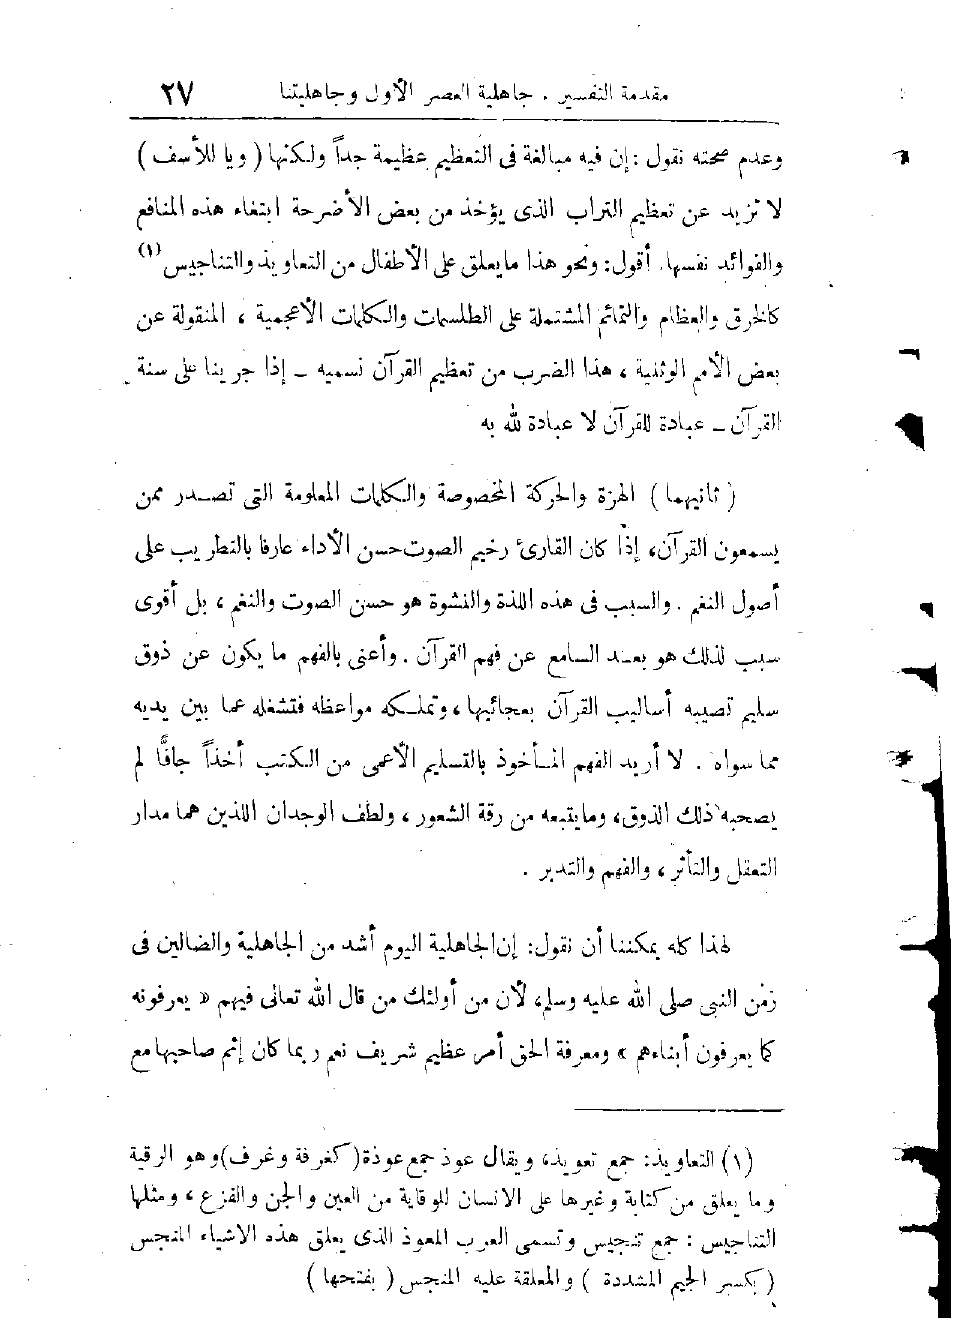 مقدمة التفسير . جاهلية العصر الأول وجاهليتنا ٢٧
وعدم صحته نقول : إن فيه مبالغة فى التعظيم عظيمة جداً ولكنها ( ويا للأسف )
لا تزيد عن تعظيم التراب الذى يؤخذ من بعض الأضرحة ابتغاء هذه المنافع
والفوائد نفسها. أقول : ونحو هذا ما يعلق على الأطفال من التعاويذ والتناجيس (١)
كالخرق والعظام والتمائم المشتملة على الطلسمات والكلمات الأعجمية ، المنقولة عن
بعض الأمم الوثنية ، هذا الضرب من تعظيم القرآن نسميه ــ إذا جرينا على سنة
القرآن ــ عبادة للقرآن لا عبادة لله به
( ثانيهما ) الهزة والحركة المخصوصة والكلمات المعلومة التى تصدر ممن
يسمعون القرآن، إذا كان القارئ رخيم الصوت حسن الأداء عارفا بالتطريب على
أصول النغم . والسبب فى هذه اللذة والنشوة هو حسن الصوت والنغم ، بل أقوى
سبب لذلك هو بعد السامع عن فهم القرآن . وأعنى بالفهم ما يكون عن ذوق
سليم تصيبه أساليب القرآن بعجائبها ، وتملكه مواعظه فتشغله عما بين يديه
مما سواه . لا أريد الفهم المأخوذ بالتسليم الأعمى من الكتب أخذاً جافًّا لم
يصحبه ذلك الذوق، وما يتبعه من رقة الشعور ، ولطف الوجدان اللذين هما مدار
التعقل والتأثر ، والفهم والتدبر .
لهذا كله يمكننا أن نقول : إن الجاهلية اليوم أشد من الجاهلية والضالين فى
زمن النبى صلى الله عليه وسلم، لأن من أولئك من قال الله تعالى فيهم « يعرفونه
كما يعرفون أبناءهم » ومعرفة الحق أمر عظيم شريف نعم ربما كان إثم صاحبها مع
(١) التعاويذ: جمع تعويذ، ويقال عوذ جمع عوذة (كغرفة وغرف) وهو الرقية
وما يعلق من كتابة وغيرها على الانسان للوقاية من العين والجن والفزع ، ومثلها
التناجيس : جمع تنجيس وتسمى العرب المعوذ الذى يعلق هذه الاشياء المنجس
( بكسر الجيم المشددة ) والمعلقة عليه المنجس ( بفتحها )